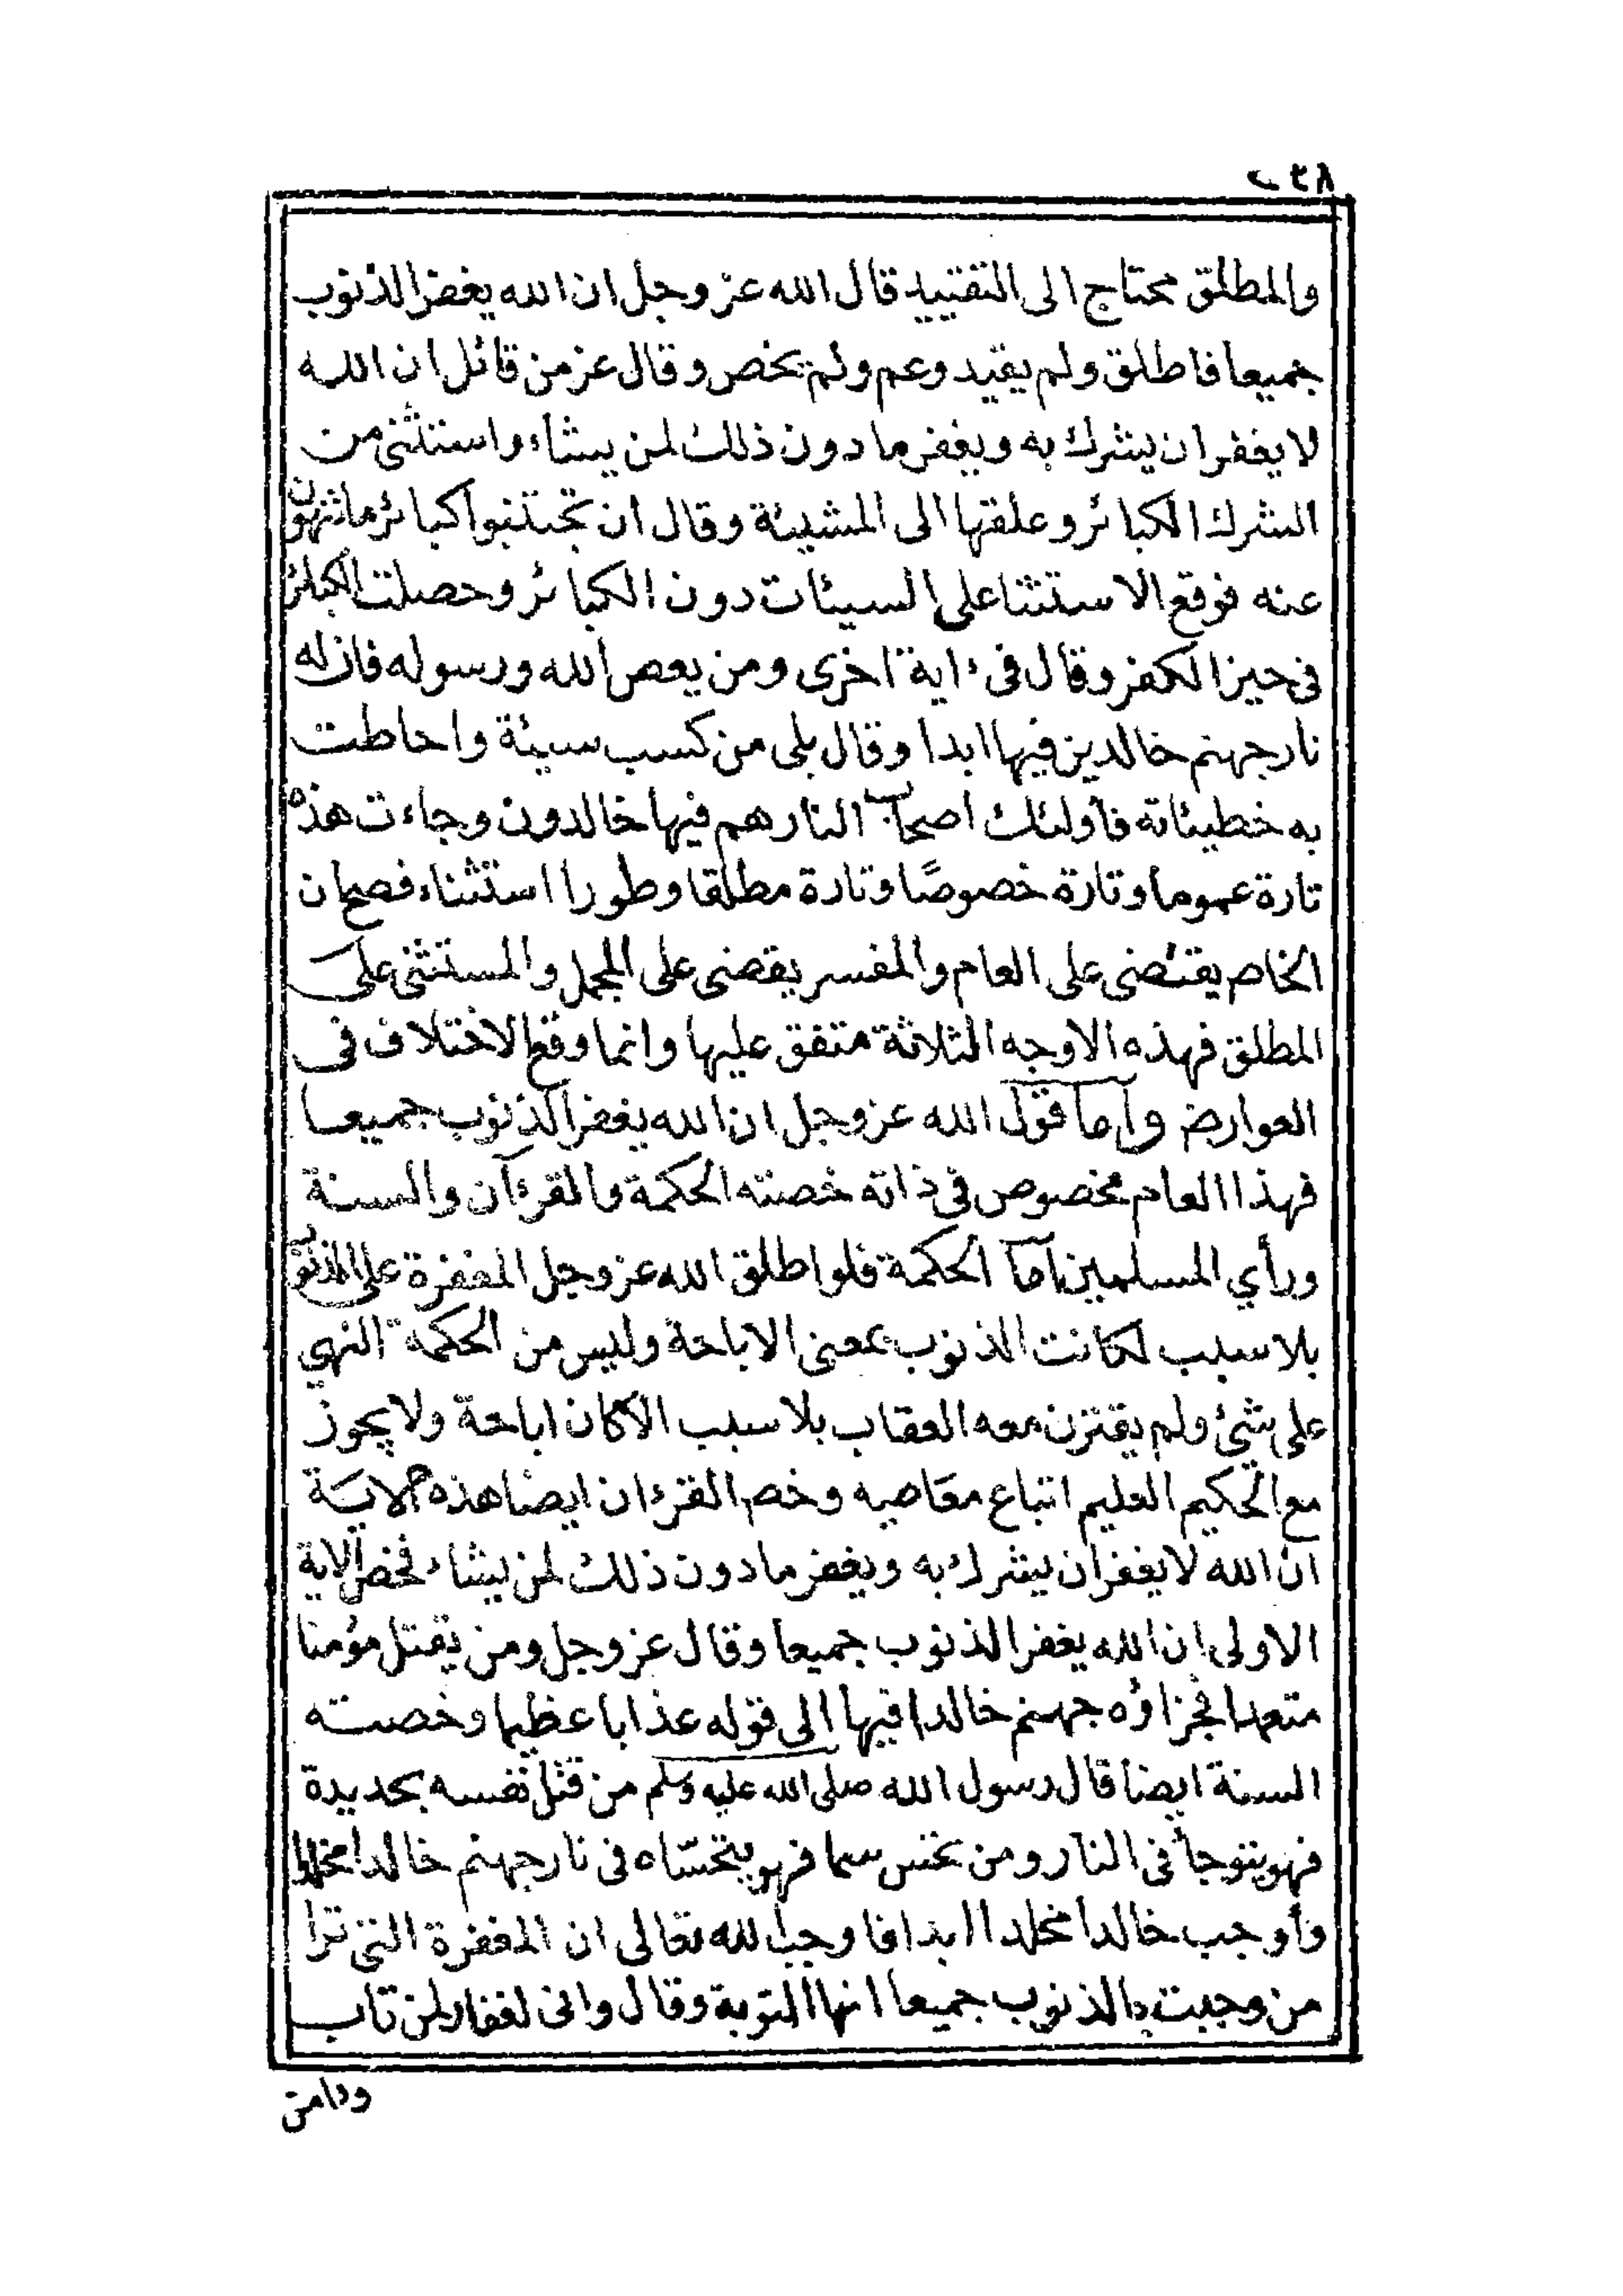 والمطلق محتاج الى التقييد قال الله عز وجل ان الله يغفر الذنوب
جميعا فاطلق ولم يقيد وعم ولم يخص وقال عز من قائل ان الله
لا يغفر ان يشرك به ويغفر ما دون ذلك لمن يشاء واستثنى من
الشرك الكبائر وعلقها الى المشيئة وقال ان تجتنبوا كبائر ما تنهون
عنه فوقع الاستثنا على السيئات دون الكبائر وحصلت الكبائر
في حيز الكفر وقال في ءاية اخرى ومن يعص الله ورسوله فان له
نار جهنم خالدين فيها ابدا وقال بلى من كسب سيئة واحاطت
به خطيئاته فأولئك اصحاب النار هم فيها خالدون وجاءت هذه
تارة عموما وتارة خصوصًا وتارة مطلقا وطورا استثناء فصح ان
الخاص يقتضى على العام والمفسر يقضى على المجمل والمستثنى على
المطلق فهذه الاوجه الثلاثة متفق عليها وانما وقع الاختلاف في
العوارض وأما قول الله عز وجل ان الله يغفر الذنوب جميعا
فهذا العام مخصوص في ذاته خصته الحكمة والقرءآن والسنة
ورأي المسلمين أما الحكمة فلو اطلق الله عز وجل المغفرة على الذنوب
بلا سبب لكانت الذنوب بمعنى الاباحة وليس من الحكمة النهي
على شئ ولم يقترن معه العقاب بلا سبب الا كان اباحة ولا يجوز
مع الحكيم العليم اتباع معاصيه وخص القرءان ايضا هذه الاية
ان الله لا يغفر ان يشرك به ويغفر ما دون ذلك لمن يشاء فخص الاية
الاولى ان الله يغفر الذنوب جميعا وقال عز وجل ومن يقتل مؤمنا
متعمدا فجزاؤه جهنم خالدا فيها الى قوله عذابا عظيما وخصته
السنة ايضا قال رسول الله صلى الله عليه وسلم من قتل نفسه بحديدة
فهو يتوجأ في النار ومن تحسى سما فهو يتحسّاه في نار جهنم خالدا مخلدا
وأوجب خالدا مخلدا ابدا فاوجب الله تعالى ان المغفرة التي ترا
من وجبت بالذنوب جميعا انها التوبة وقال وانى لغفار لمن تاب
وءامن